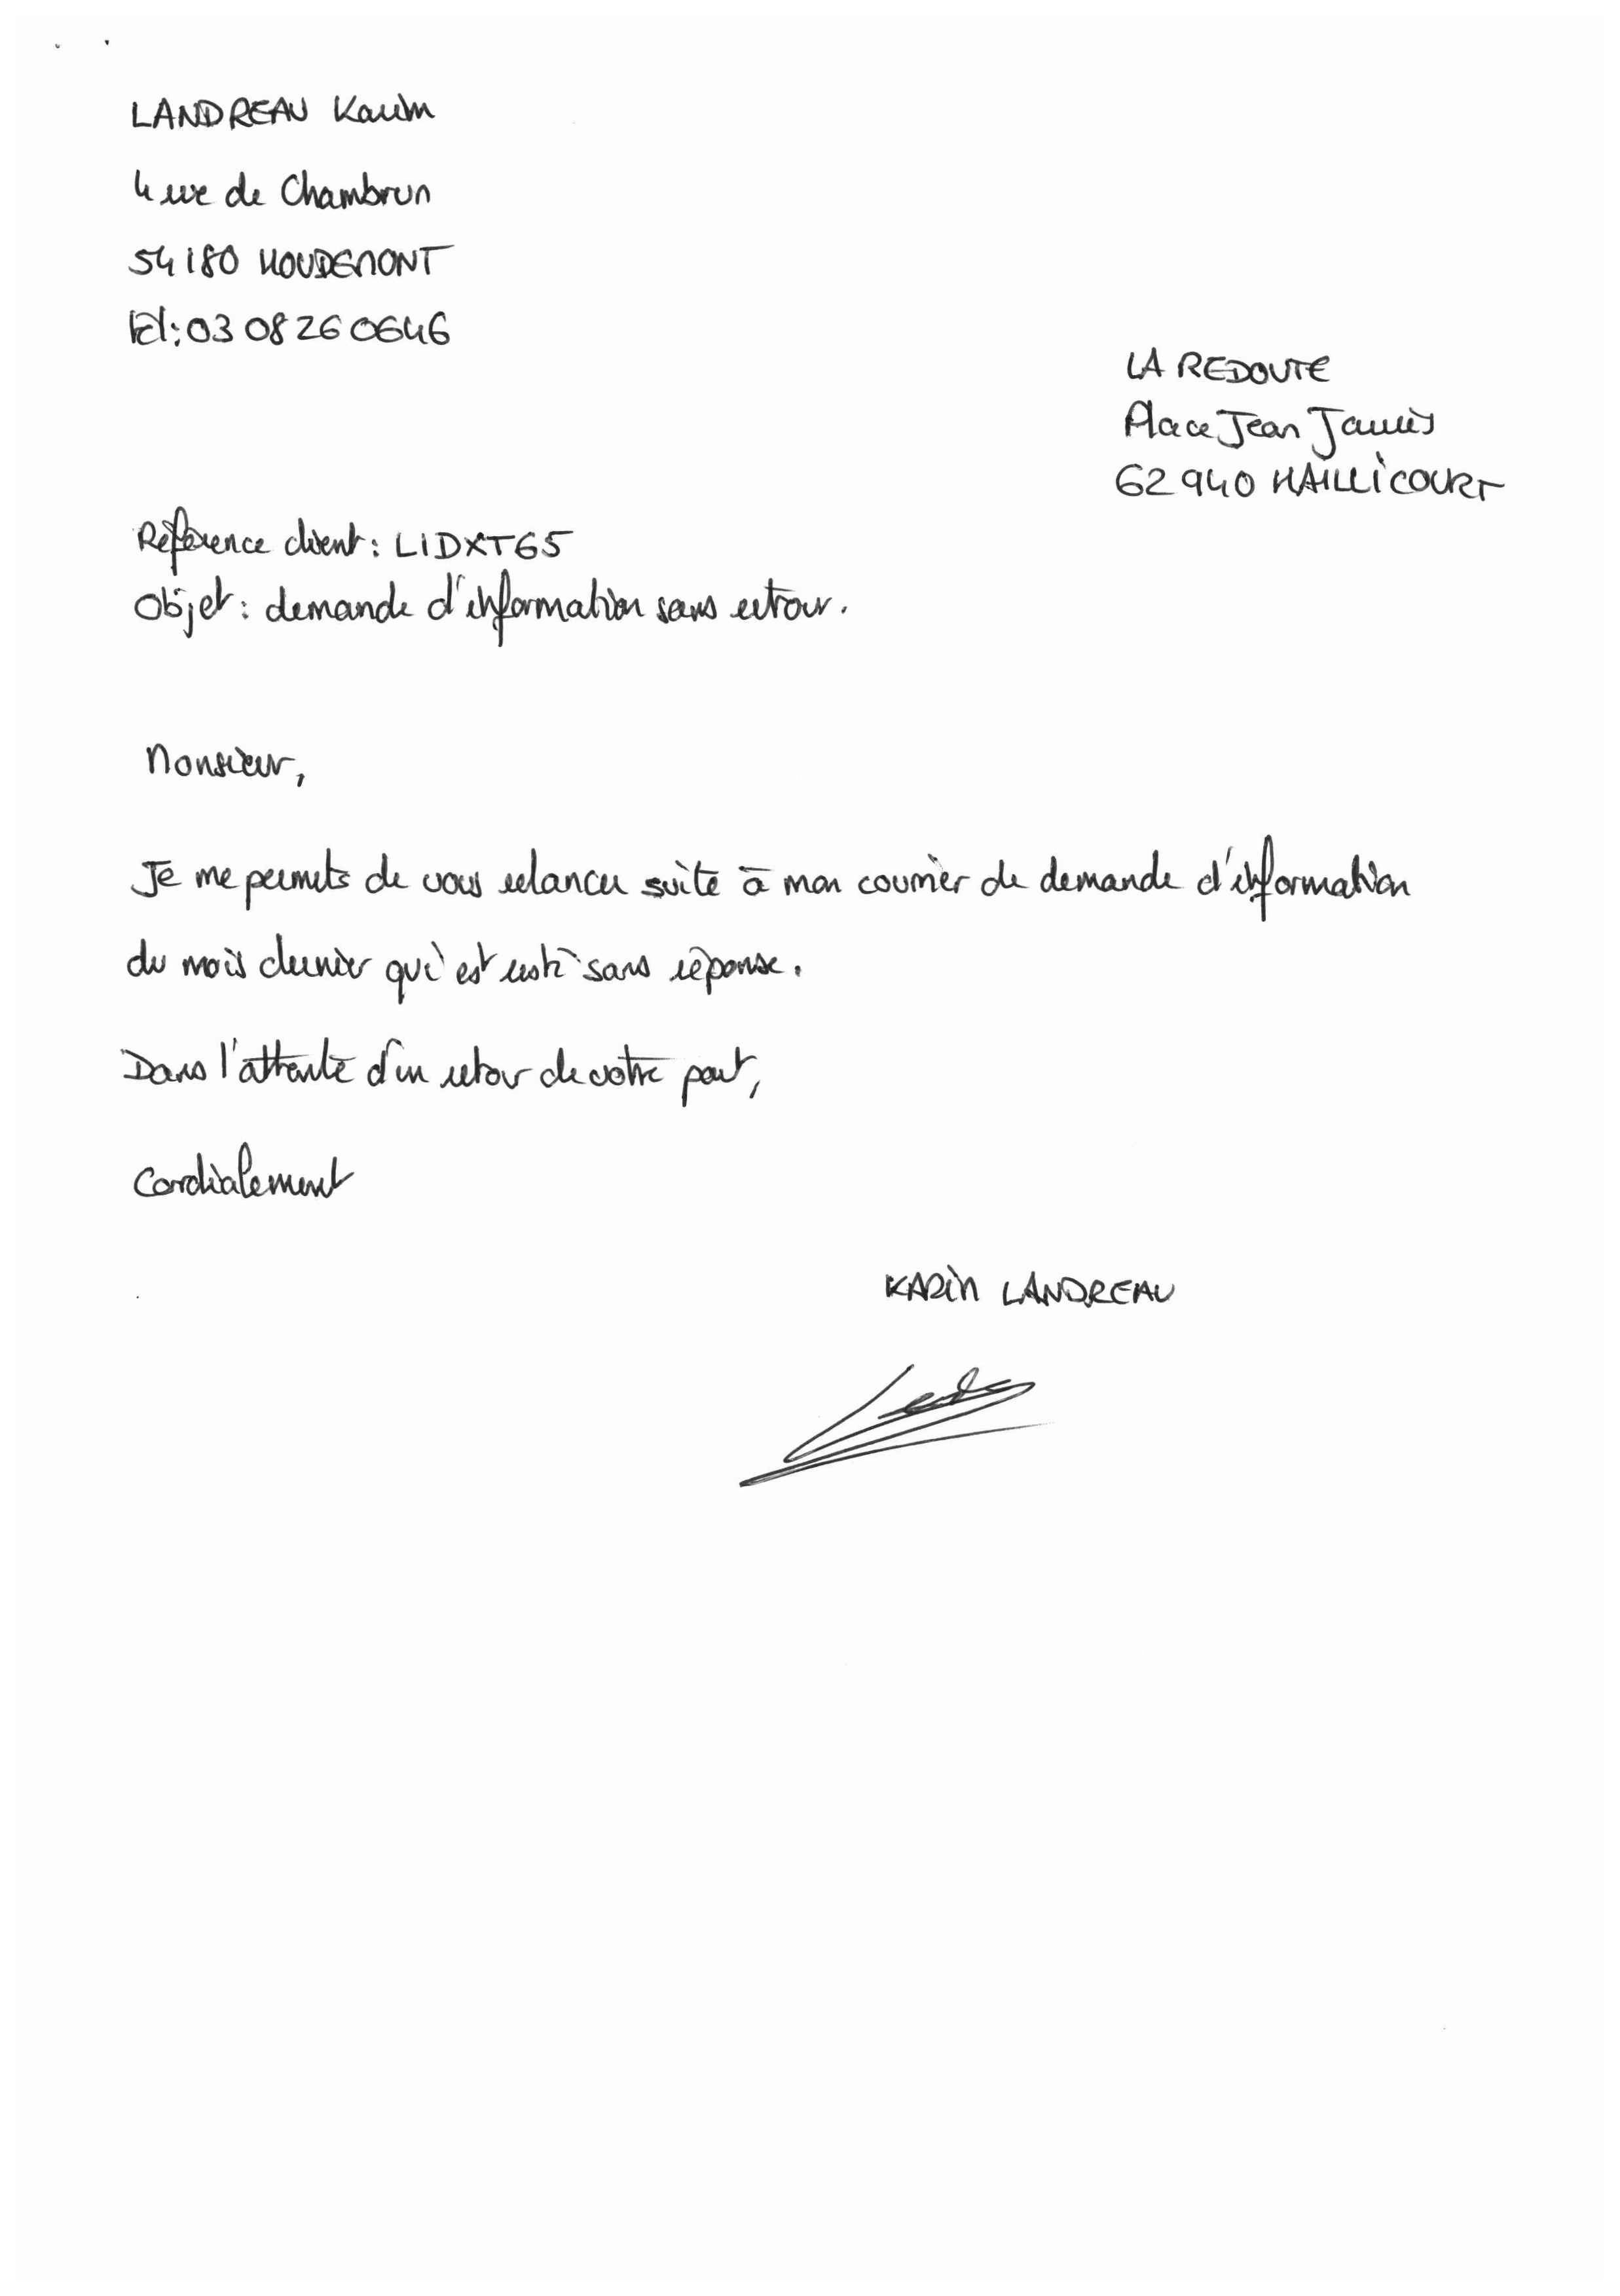 LANDREAU Karim
4 rue de Chambrun
54180 HOUDEMONT
Tél : 03 08 26 06 46
LA REDOUTE
Place Jean Jaurès
62940 HAILLICOURT
Référence client : LIDXT65
Objet : demande d'information sans retour.
Monsieur,
Je me permets de vous relancer suite à mon courrier de demande d'information
du mois dernier qui est resté sans réponse.
Dans l'attente d'un retour de votre part,
Cordialement
KARIM LANDREAU